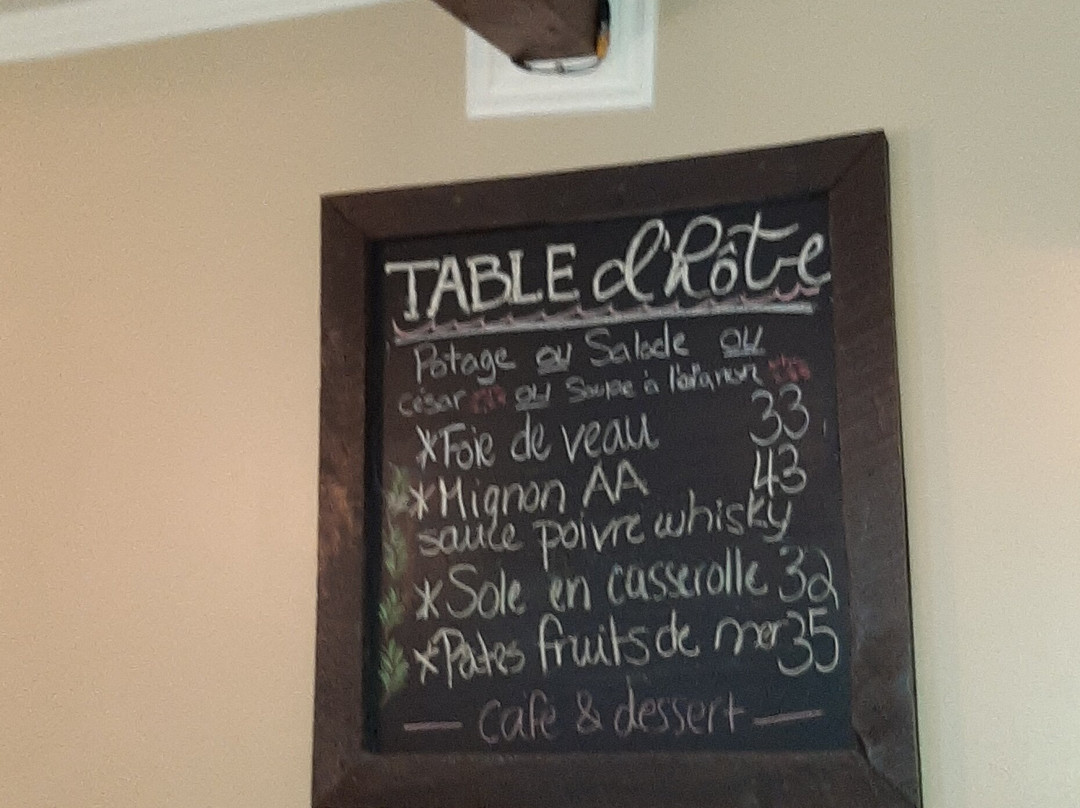 TABLE d'hôte
Potage ou Salade ou
césar ou Soupe à l'oignon
*Foie de veau 33
*Mignon AA 43
sauce poivre whisky
*Sole en casserolle 32
*Pates fruits de mer 35
— café & dessert —